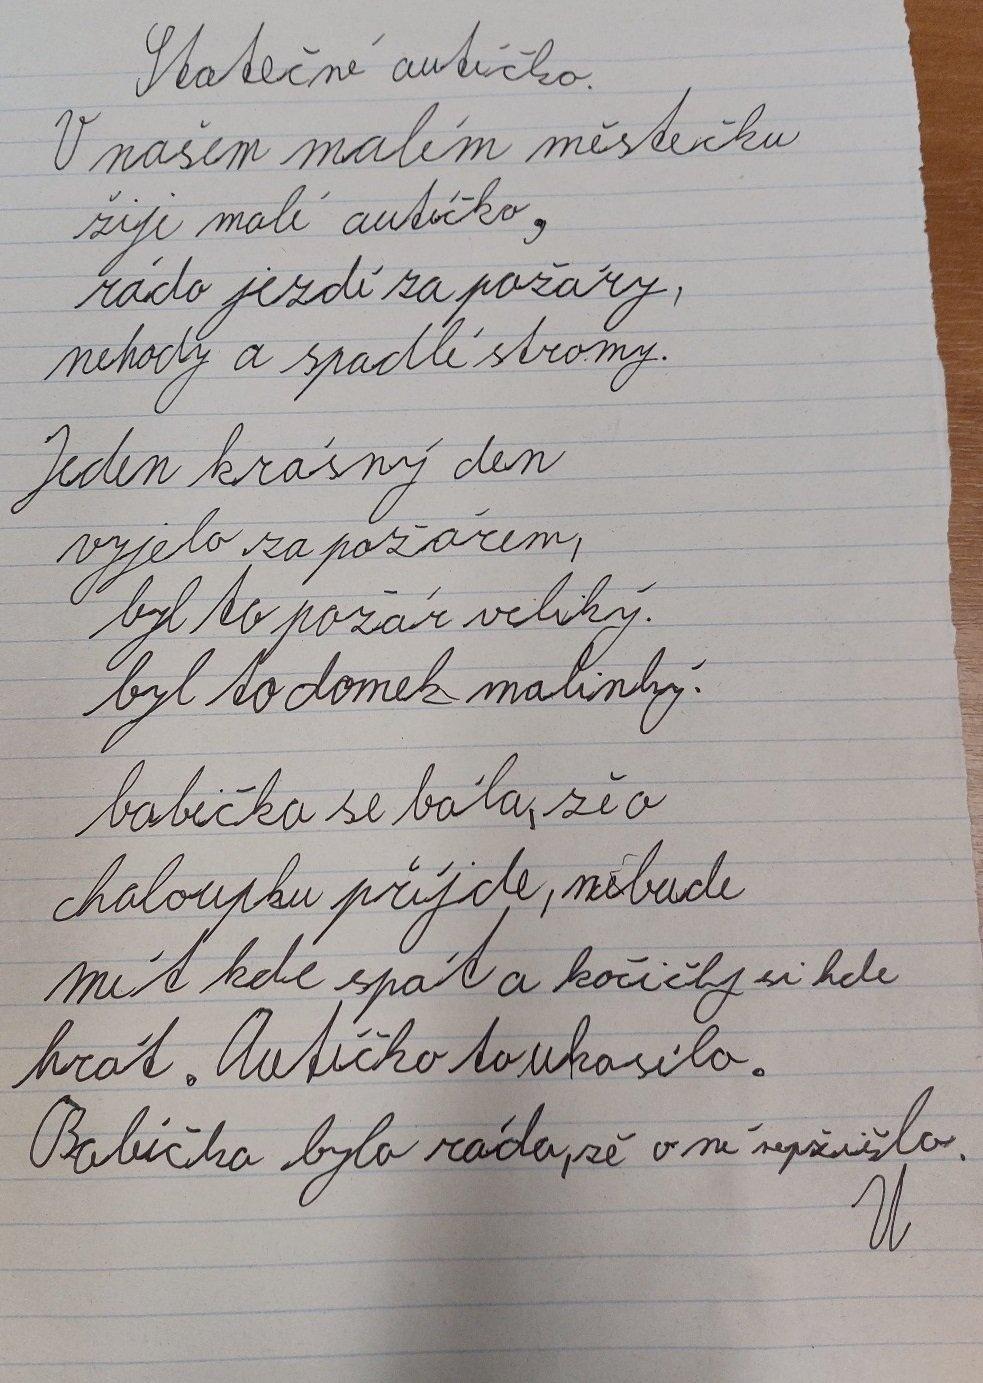 Statečné autíčko.
V našem malém městečku
žije malé autíčko,
rádo jezdí za požáry,
nehody a spadlé stromy.
Jeden krásný den
vyjelo za požárem,
byl to požár veliký.
byl to domek malinký.
babička se bála, že o
chaloupku příjde, nebude
mít kde spát a kočičky si kde
hrát. Autíčko to uhasilo.
Babička byla ráda, že o ní nepřišla.